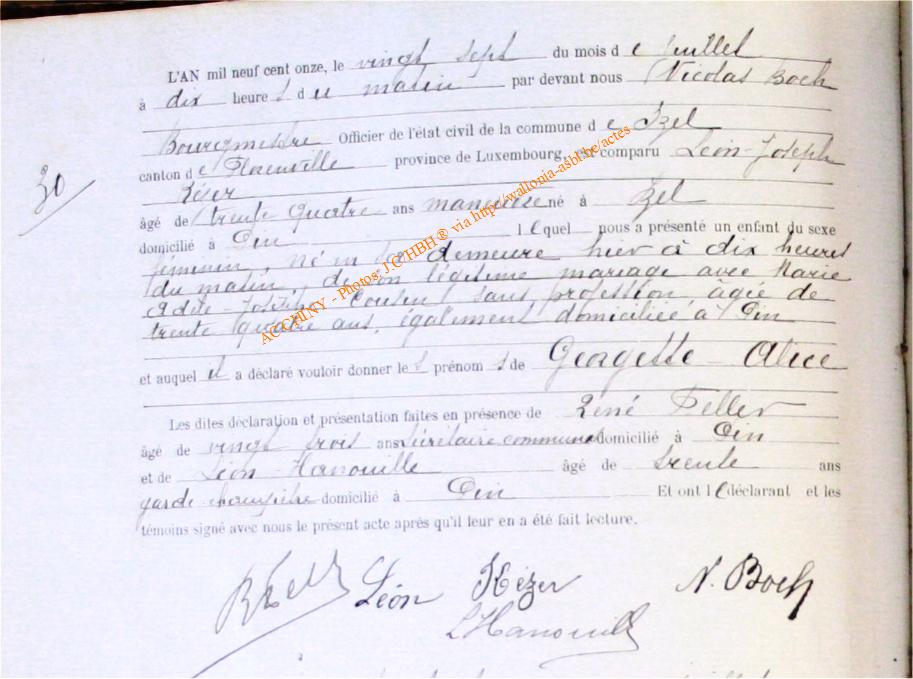 L'AN mil neuf cent onze, le vingt sept du mois de Juillet
à dix heures du matin par devant nous Nicolas Boch
Bourgmestre Officier de l'état civil de la commune de Izel
30
canton de Florenville province de Luxembourg, est comparu Léon-Joseph
Késer
âgé de trente quatre ans manœuvre né à Izel
domicilié à Pin lequel nous a présenté un enfant du sexe
féminin, né en sa demeure hier à dix heures
du matin, de son légitime mariage avec Marie
Adèle-Joséphine Cousin, sans profession, âgée de
trente quatre ans, également domiciliée à Pin
et auquel il a déclaré vouloir donner les prénoms de Georgette Alice
Les dites déclaration et présentation faites en présence de René Feller
âgé de vingt trois ans Secrétaire communal domicilié à Pin
et de Léon Hanouille âgé de trente ans
garde champêtre domicilié à Pin Et ont le déclarant et les
témoins signé avec nous le présent acte après qu'il leur en a été fait lecture.
Léon Kézer N. Boch
L Hanouille
ACCHINY - Photos: J.CHBH® via http/wallonia-asbl.be/actes